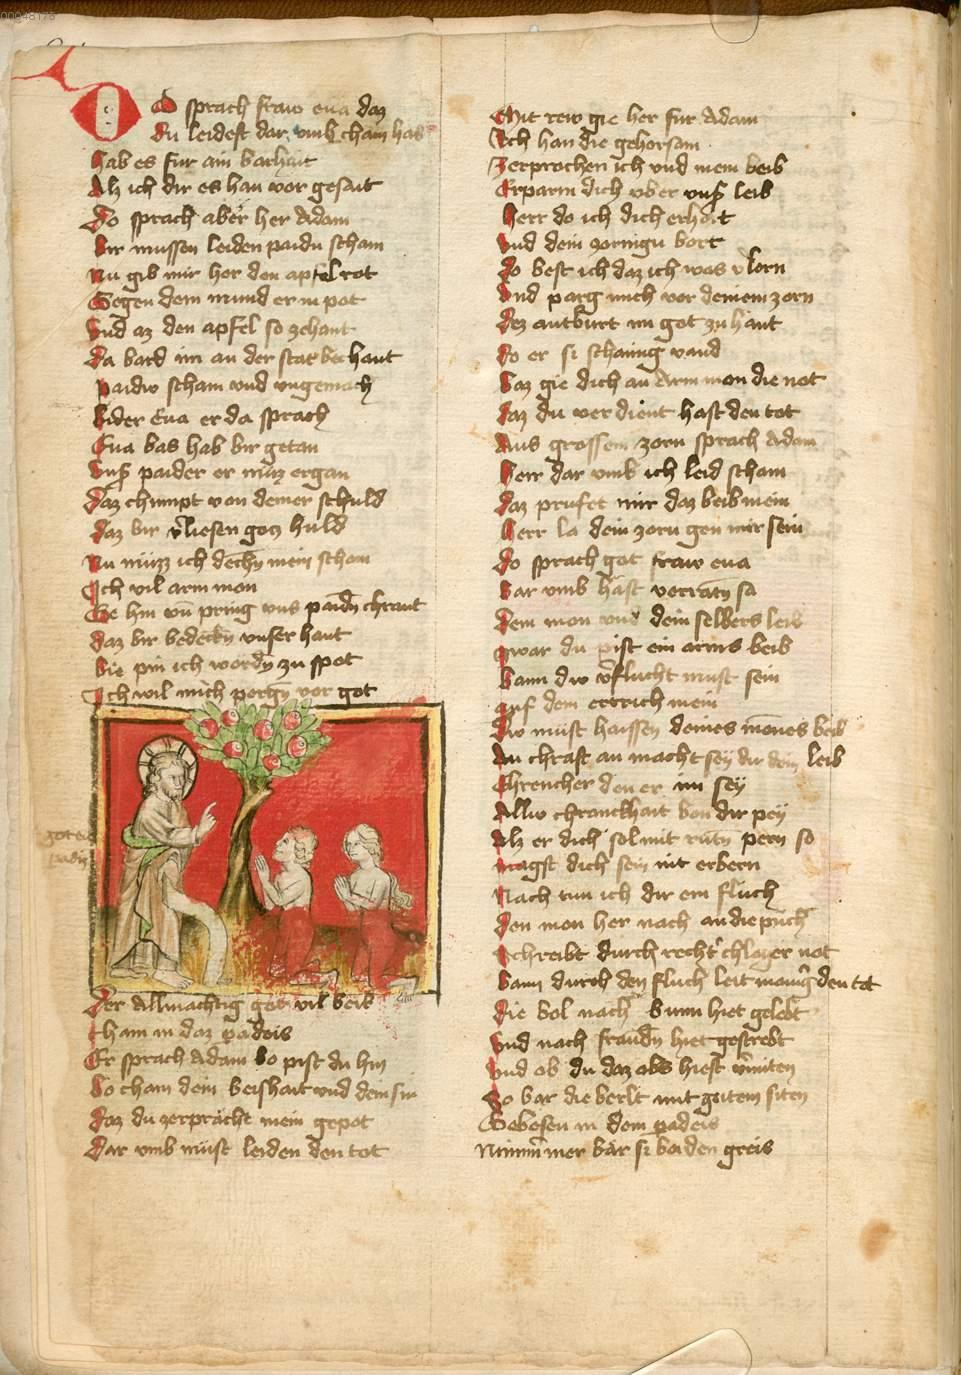 00048178
Do sprach fraw eua daz
du leidest dar vmb cham has
hab es fur am barhait
Alz ich dir es han vor gesait
Do sprach aber her Adam
bir mussen leiden paidu scham
Nu gib mir her den apfel rot
Gegen dem mund er in pot
Vnd az den apfel so zehant
Da bard im an der stat bechant
paidw scham vnd vngemach
bider Eua er da sprach
Eua bas hab bir getan
Vnser paider er muz ergan
Daz chumpt von deiner schuld
Daz bir vliesen gotz huld
Nu muzz ich dechn mein scham
Ich vil arm man
Ge hin vn pring vns paidn chraut
daz bir bedeckn vnser haut
bie pin ich wordn zu spot
Ich wil mich pergn vor got
Der Allmachtig got vil beis
cham in daz padeis
Er sprach Adam bo pist du hin
bo cham dein beishait vnd dein sin
Daz du zerpracht mein gepot
Dar vmb must leiden den tot
Mit rew gie her fur Adam
Ich han die gehorsam
Zerprochen ich vnd mein beib
Erparm dich vber vnser leib
Herr do ich dich erhort
Vnd dein zornigu bort
Do best ich daz ich was vlorn
Vnd parg mich vor deinem zorn
Dez antburt im got zu hant
do er si schamig vand
baz gie dich an arm man die not
daz du verdient hast den tot
Aus grossem zorn sprach Adam
Herr dar vmb ich leid scham
daz prufet mir daz beib mein
Herr la dein zorn gen mir sein
Do sprach got fraw eua
bar vmb hast verratn sa
dem man vnd dein selbers leib
zwar du pist ein arms beib
bann dw vflucht must sein
auf dem ertrich mein
Dw must haissen deines mones beib
An chraft an macht sey dir dein leib
Chrencher den er im sey
Allw chranckhait bon dir pey
Alz er dich sol mit rutn pern so
magst dich sein nit erbern
Nach tun ich dir ein fluch
den man her nach an die puch
Schreibt durch recht chlager not
bann durch den fluch leit manig den tot
die bol nach bunn hiet gelebt
Vnd nach fraudn hiet gestrebt
Vnd ob du daz obs hiest vmiten
So bar die berlt mit gutem siten
Gebesen in dem padeis
Nimmer mer bar si borden greis